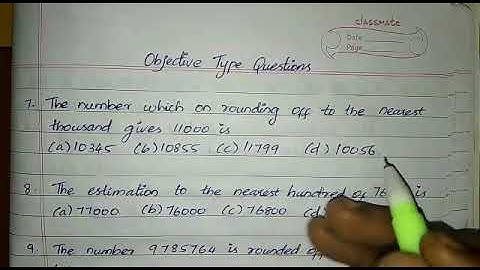 classmate
Date
Page
Objective Type Questions
7. The number which on rounding off to the nearest
thousand gives 11000 is
(a) 10345 (b) 10855 (c) 11799 (d) 10056
8. The estimation to the nearest hundred of 76 is
(a) 77000 (b) 76000 (c) 76800 (d)
9. The number 9785764 is rounded off